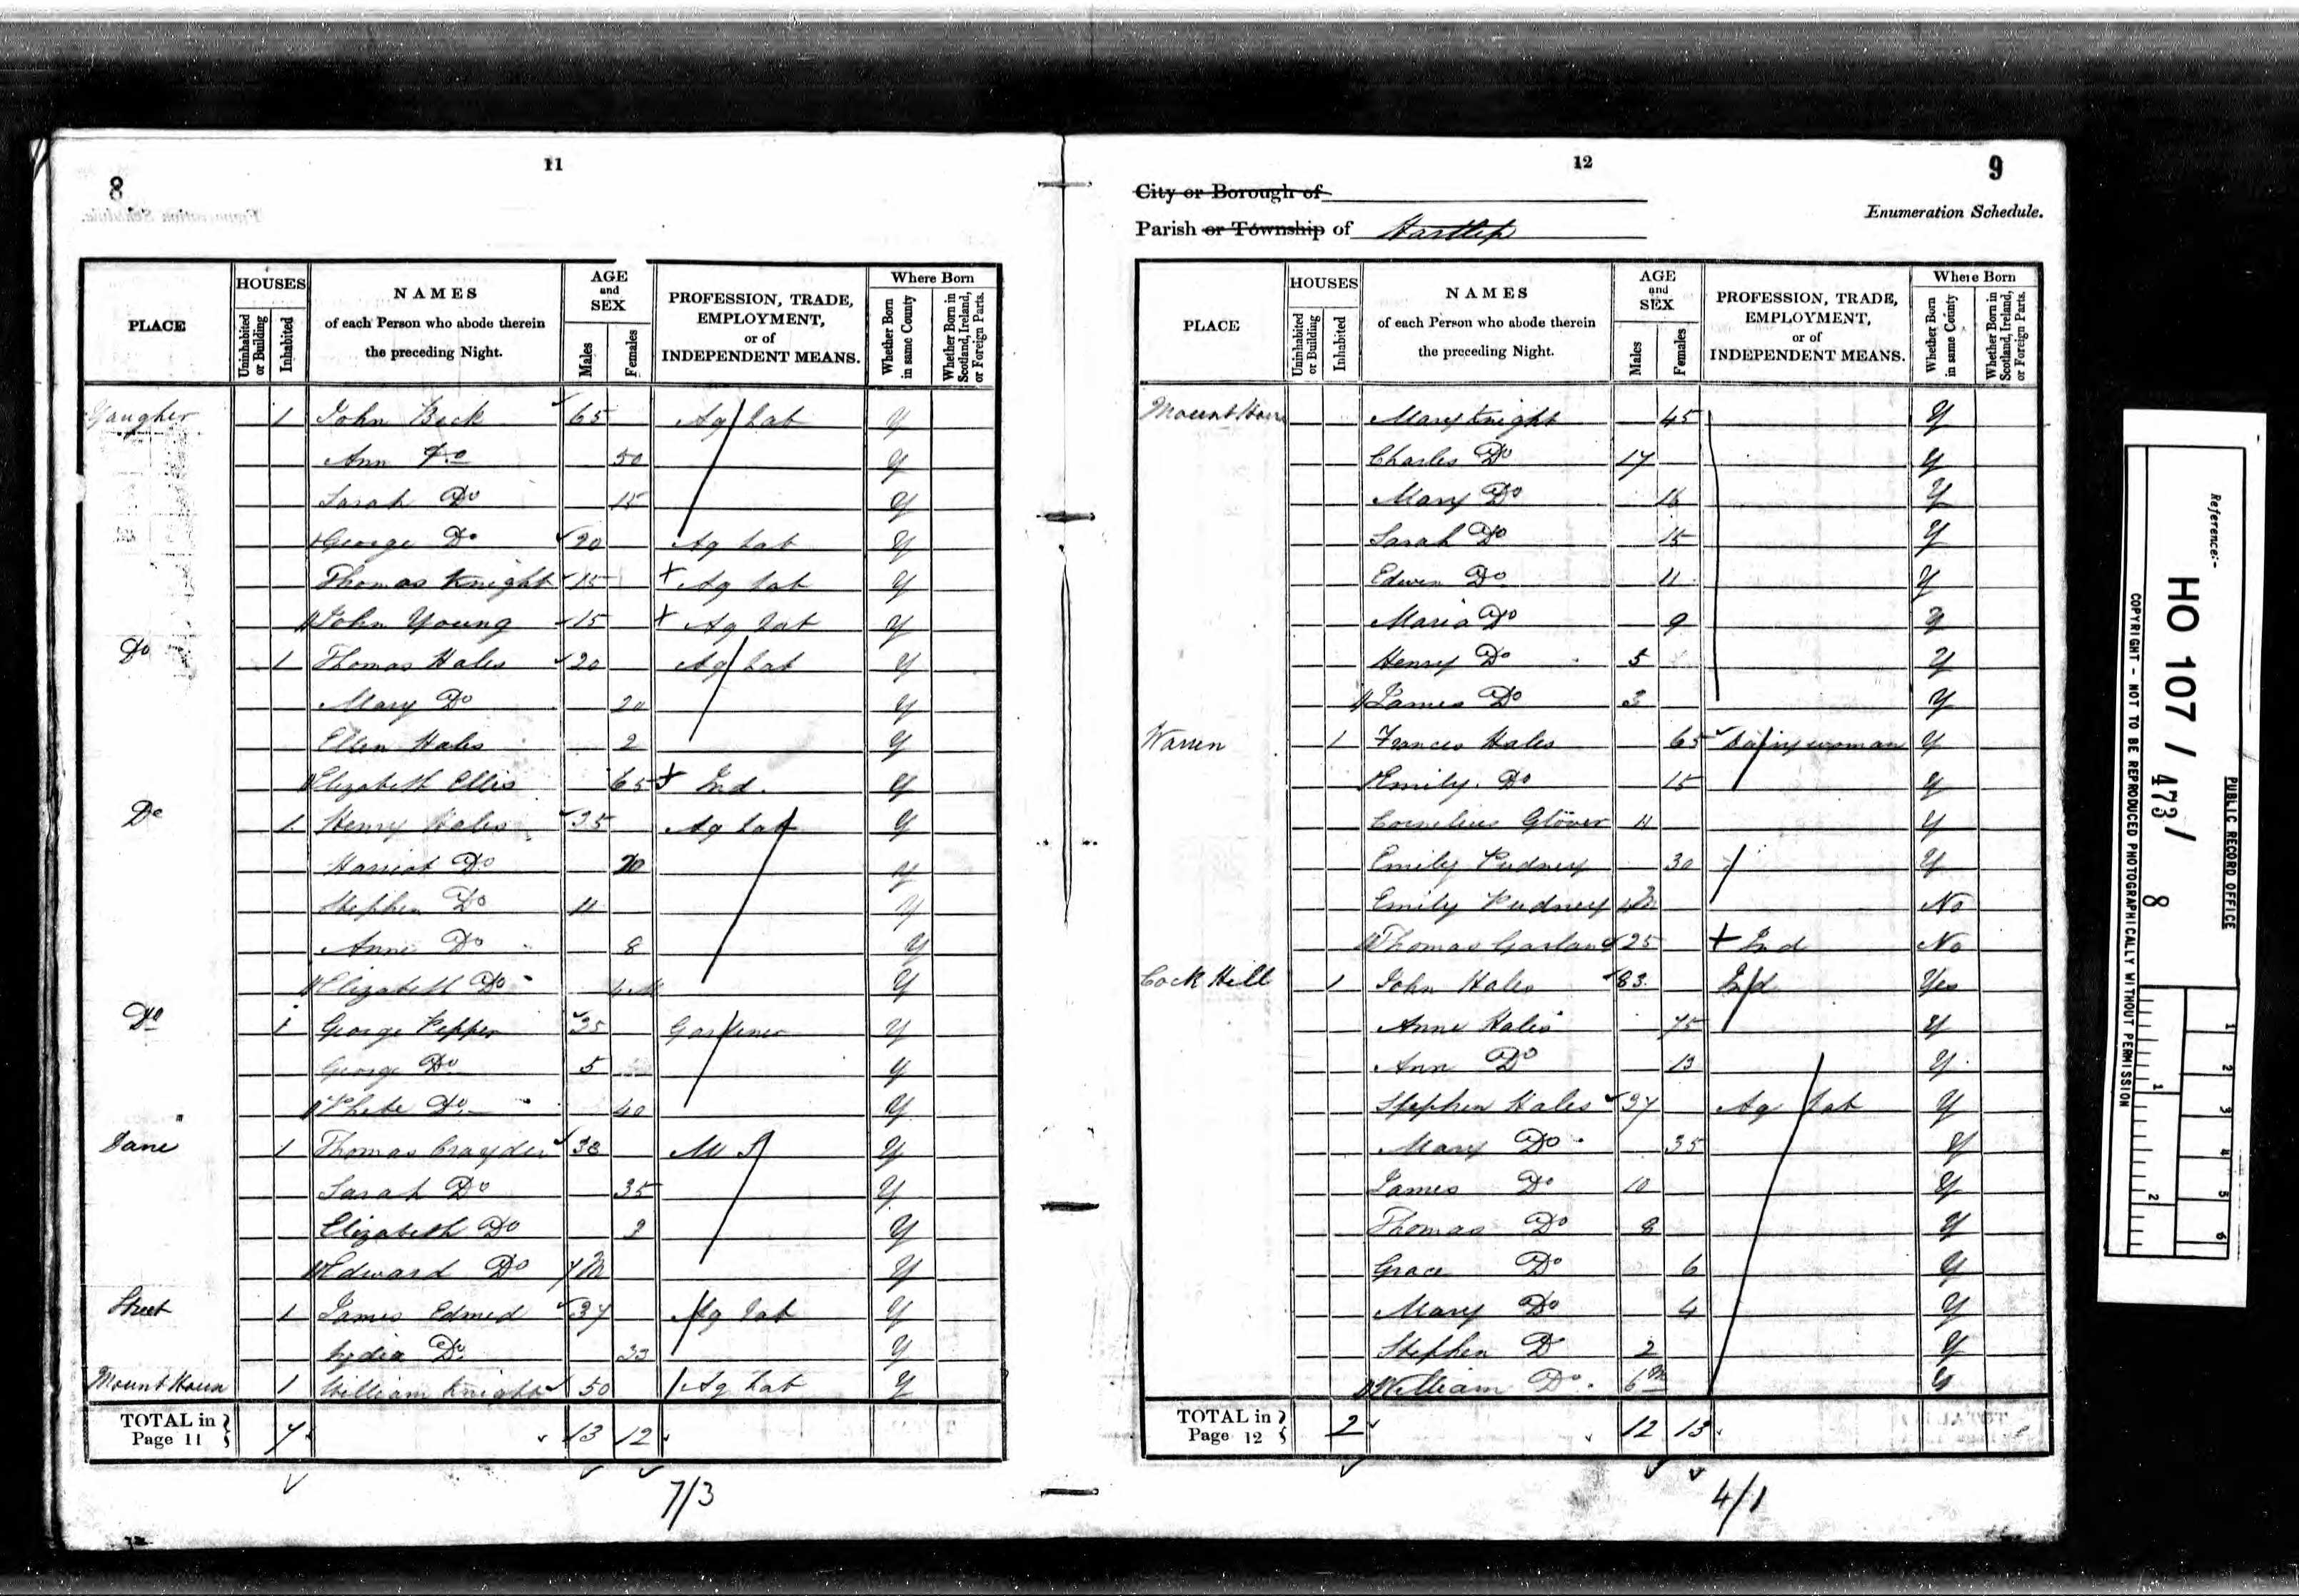 11
8
PLACE
HOUSES
Uninhabited or Building
Inhabited
NAMES
of each Person who abode therein
the preceding Night.
AGE
and
SEX
Males
Females
PROFESSION, TRADE,
EMPLOYMENT,
or of
INDEPENDENT MEANS.
Where Born
Whether Born in same County
Whether Born in Scotland, Ireland, or Foreign Parts.
1 John Beck 65 Ag Lab Y
Ann Do 50 Y
Sarah Do 15 Y
George Do 20 Ag Lab Y
Thomas Knight 15 + Ag Lab Y
John Young 15 + Ag Lab Y
Do 1 Thomas Hales 20 Ag Lab Y
Mary Do 20 Y
Ellen Hales 2 Y
Elizabeth Ellis 65 + Ind. Y
Do 1 Henry Hales 35 Ag Lab Y
Harriot Do Y
Stephen Do 11 Y
Anne Do 8 Y
Elizabeth Do Y
Do 1 George Pepper 35 Gardener Y
George Do 5 Y
Phebe Do 40 Y
Dane 1 Thomas 38 M S Y
Sarah Do 35 Y
Elizabeth Do Y
Edward Do 7 M Y
Street 1 James Edmed 37 Ag Lab Y
Lydia Do Y
Mount 1 William Knight 50 Ag Lab Y
TOTAL in Page 11 7 13 12
7/3
12
9
City or Borough of
Parish or Township of Hartlip
Enumeration Schedule.
PLACE
HOUSES
Uninhabited or Building
Inhabited
NAMES
of each Person who abode therein
the preceding Night.
AGE
and
SEX
Males
Females
PROFESSION, TRADE,
EMPLOYMENT,
or of
INDEPENDENT MEANS.
Where Born
Whether Born in same County
Whether Born in Scotland, Ireland, or Foreign Parts.
Mount Mary Knight 45 Y
Charles Do 17 Y
Mary Do 16 Y
Sarah Do 15 Y
Edwin Do 11 Y
Maria Do 9 Y
Henry Do 5 Y
James Do 3 Y
Warren 1 Frances Hales 65 Dairy woman Y
Emily Do 15 Y
Cornelius Glover 11 Y
Emily Pudney 30 Y
Emily Pudney No
Thomas Garland 25 + Ind No
Cock Hill 1 John Hales 83 Ind Yes
Anne Hales 75 Y
Ann Do 13 Y
Stephen Hales 37 Ag Lab Y
Mary Do 35 Y
James Do 10 Y
Thomas Do 8 Y
Grace Do 6 Y
Mary Do 4 Y
Stephen D 2 Y
William Do 6M Y
TOTAL in Page 12 2 12 13
4/1
Reference:-
HO 107 / 473 / 8
PUBLIC RECORD OFFICE
COPYRIGHT - NOT TO BE REPRODUCED PHOTOGRAPHICALLY WITHOUT PERMISSION
1 2 3 4 5 6
1 2